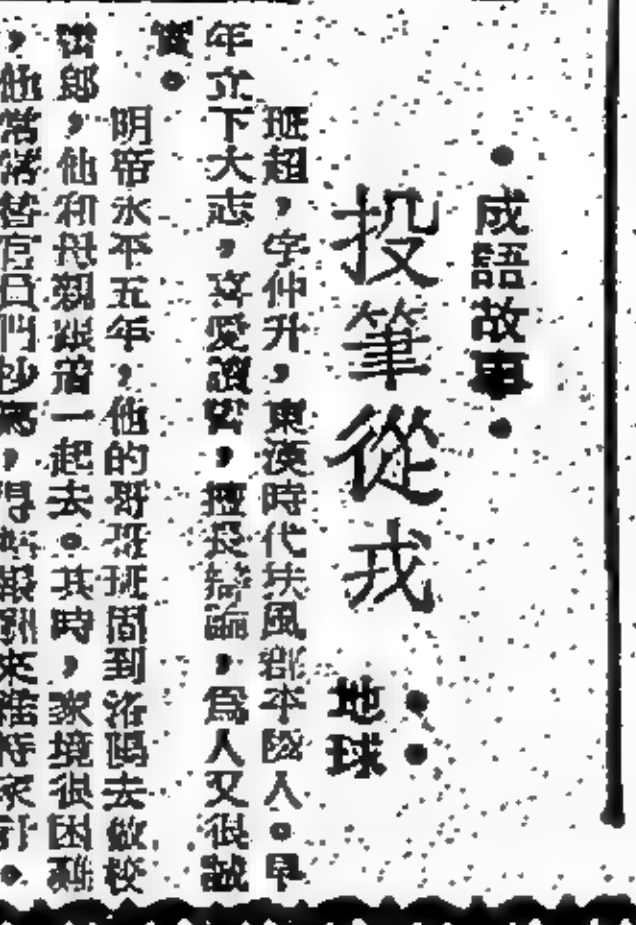 •成語故事•
投筆從戎
：地球
班超，字仲升，東漢時代扶風郡平陵人。早
年立下大志，喜愛讀書，擅長辯論，爲人又很誠
實。
明帝永平五年，他的哥哥班固到洛陽去做校
書郎，他和母親跟着一起去。其時，家境很困難
，他常常替官員們抄寫，得些報酬來維持家計。